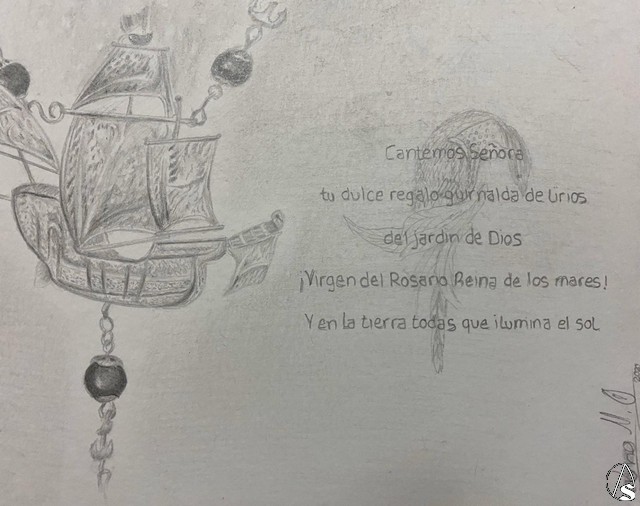 Cantemos Señora
tu dulce regalo guirnalda de lirios
del jardin de Dios
¡Virgen del Rosario Reina de los mares!
Y en la tierra todas que ilumina el sol